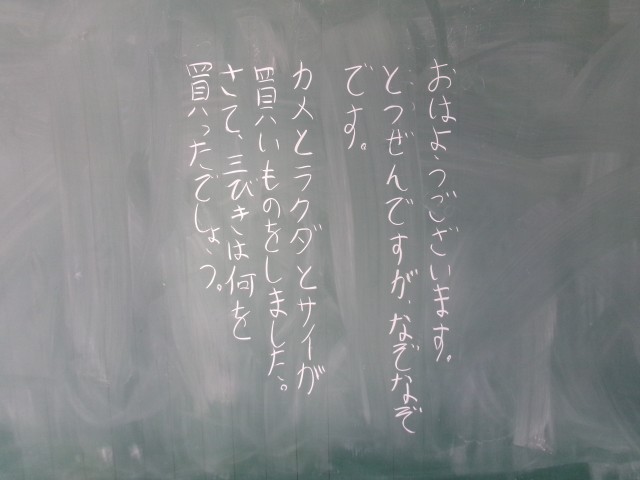 おはようございます。
とつぜんですが、なぞなぞ
です。
カメとラクダとサイが
買いものをしました。
さて、三びきは何を
買ったでしょう。